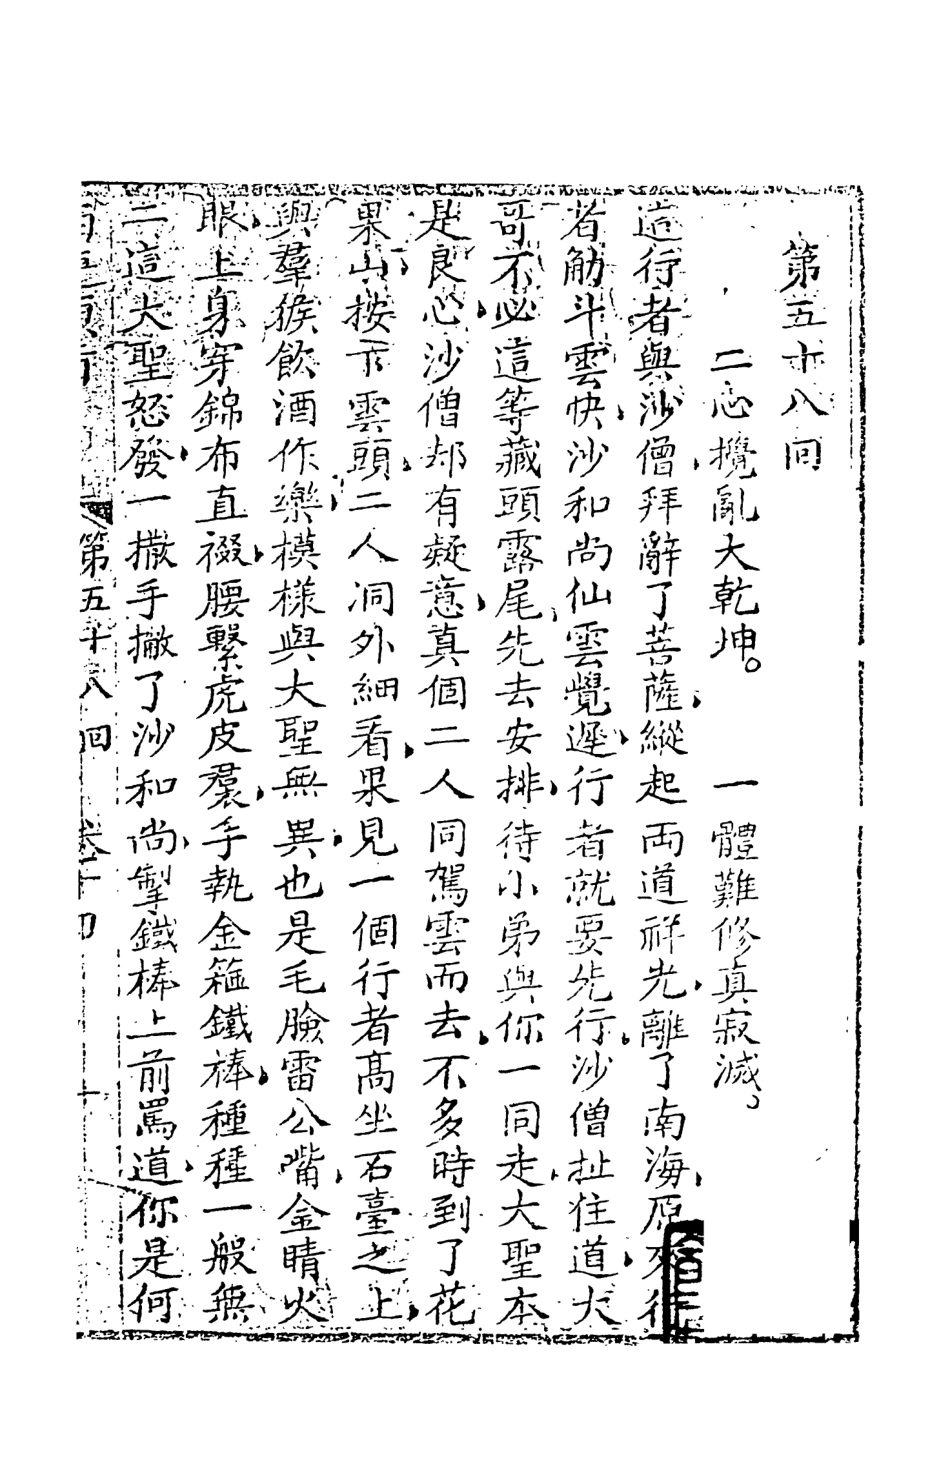 第五十八回
二心攪亂大乾坤。 一體難修真寂滅。
這行者與沙僧拜辭了菩薩縱起兩道祥光離了南海原來行
者觔斗雲快沙和尚仙雲覺遲行者就要先行沙僧扯住道大
哥不必這等藏頭露尾先去安排待小弟與你一同走大聖本
是良心沙僧却有疑意真個二人同駕雲而去不多時到了花
果山按下雲頭二人洞外細看果見一個行者高坐石臺之上
與羣猴飲酒作樂模樣與大聖無異也是毛臉雷公嘴金睛火
眼上身穿錦布直裰腰繫虎皮裙手執金箍鐵棒種種一般無
二這大聖怒發一撒手撇了沙和尚掣鐵棒上前罵道你是何
第五十八回 卷十